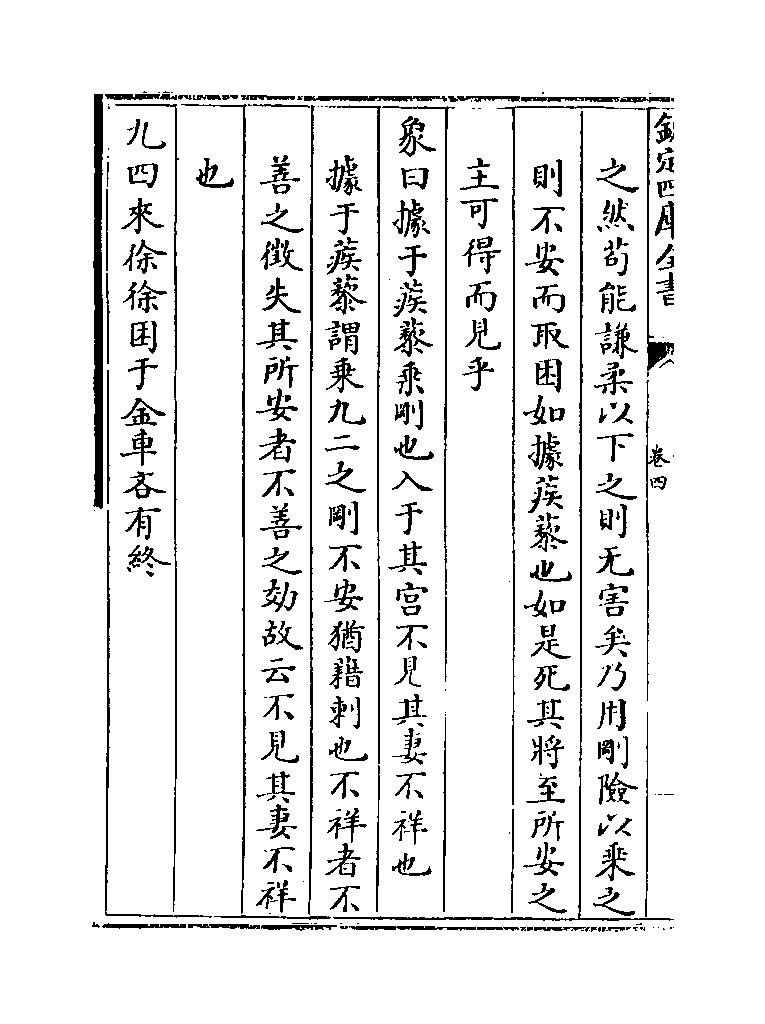 欽定四庫全書
卷四
之然茍能謙柔以下之則无害矣乃用剛險以乘之
則不安而取困如據蒺藜也如是死其將至所安之
主可得而見乎
象曰據于蒺藜乘剛也入于其宫不見其妻不祥也
據于蒺藜謂乘九二之剛不安猶藉刺也不祥者不
善之徴失其所安者不善之効故云不見其妻不祥
也
九四來徐徐困于金車吝有終